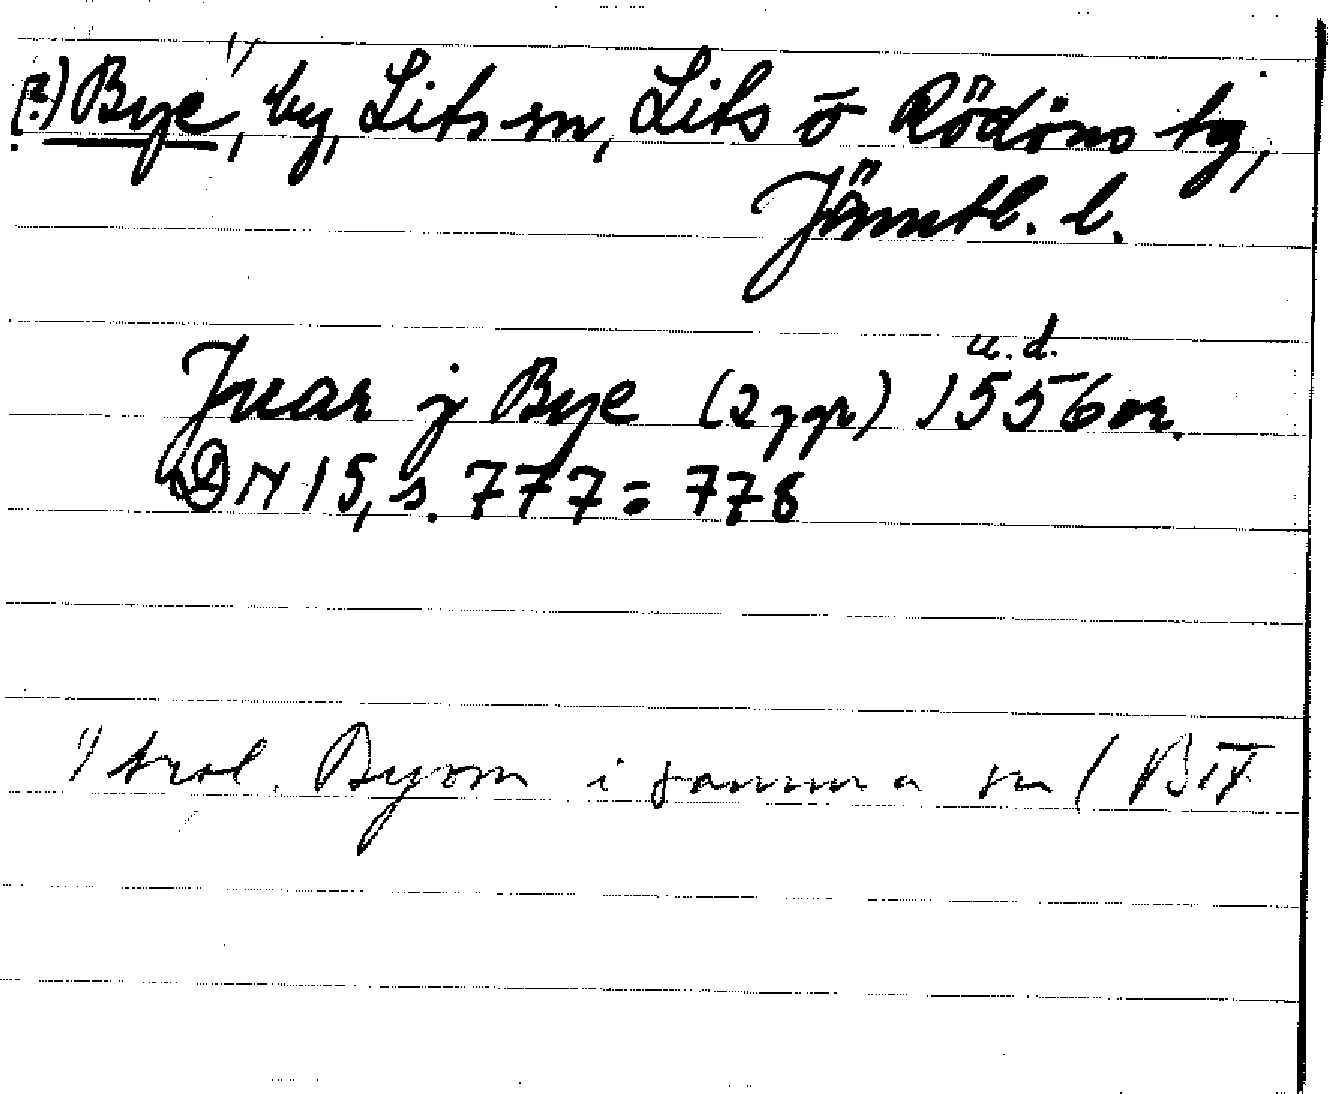 (?) Bye¹⁾, by, Lits sn, Lits o Rödöns tg,
Jämtl. l.
u.d.
Juar j Bye (2 ggr) 1556 or.
DN 15, s. 777 = 778
¹⁾ trol. Byom i samma sn (B IV